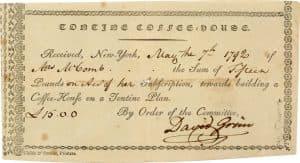 TONTINE COFFEE-HOUSE.
Received, New-York, May the 7th 1792 of
Mrs McComb the Sum of Fifteen
Pounds on of her Subscription, towards building a
Coffee-House on a Tontine Plan.
£15.00 By Order of the Committee,
David Grim